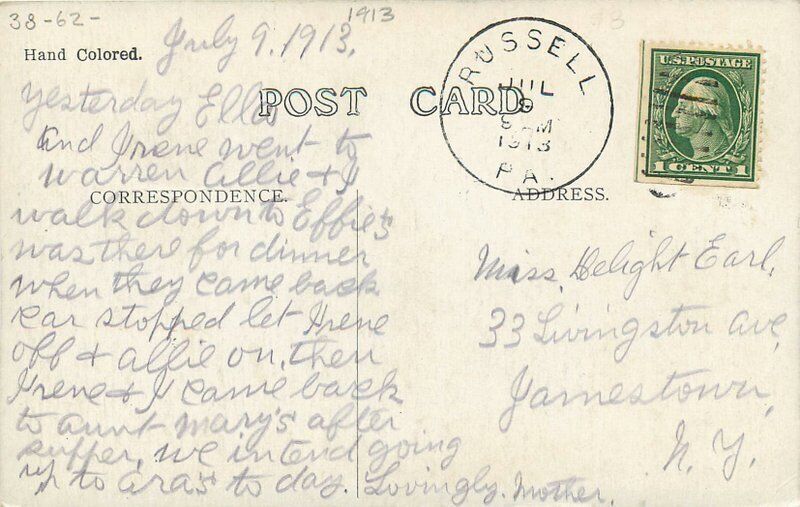 38-62-
1913
July 9, 1913.
Hand Colored.
POST CARD.
RUSSELL
JUL
9
M
1913
PA.
U.S. POSTAGE
1 CENT 1
Yesterday Ella
and Irene went to
Warren Allie & I
CORRESPONDENCE.
walk down to Effie's
was there for dinner
when they came back
car stopped let Irene
off & Allie on, then
Irene & I came back
to Aunt Mary's after
supper, we intend going
up to Ara's to day. Lovingly. Mother.
ADDRESS.
Miss, Delight Earl,
33 Livingston Ave,
Jamestown,
N. Y.